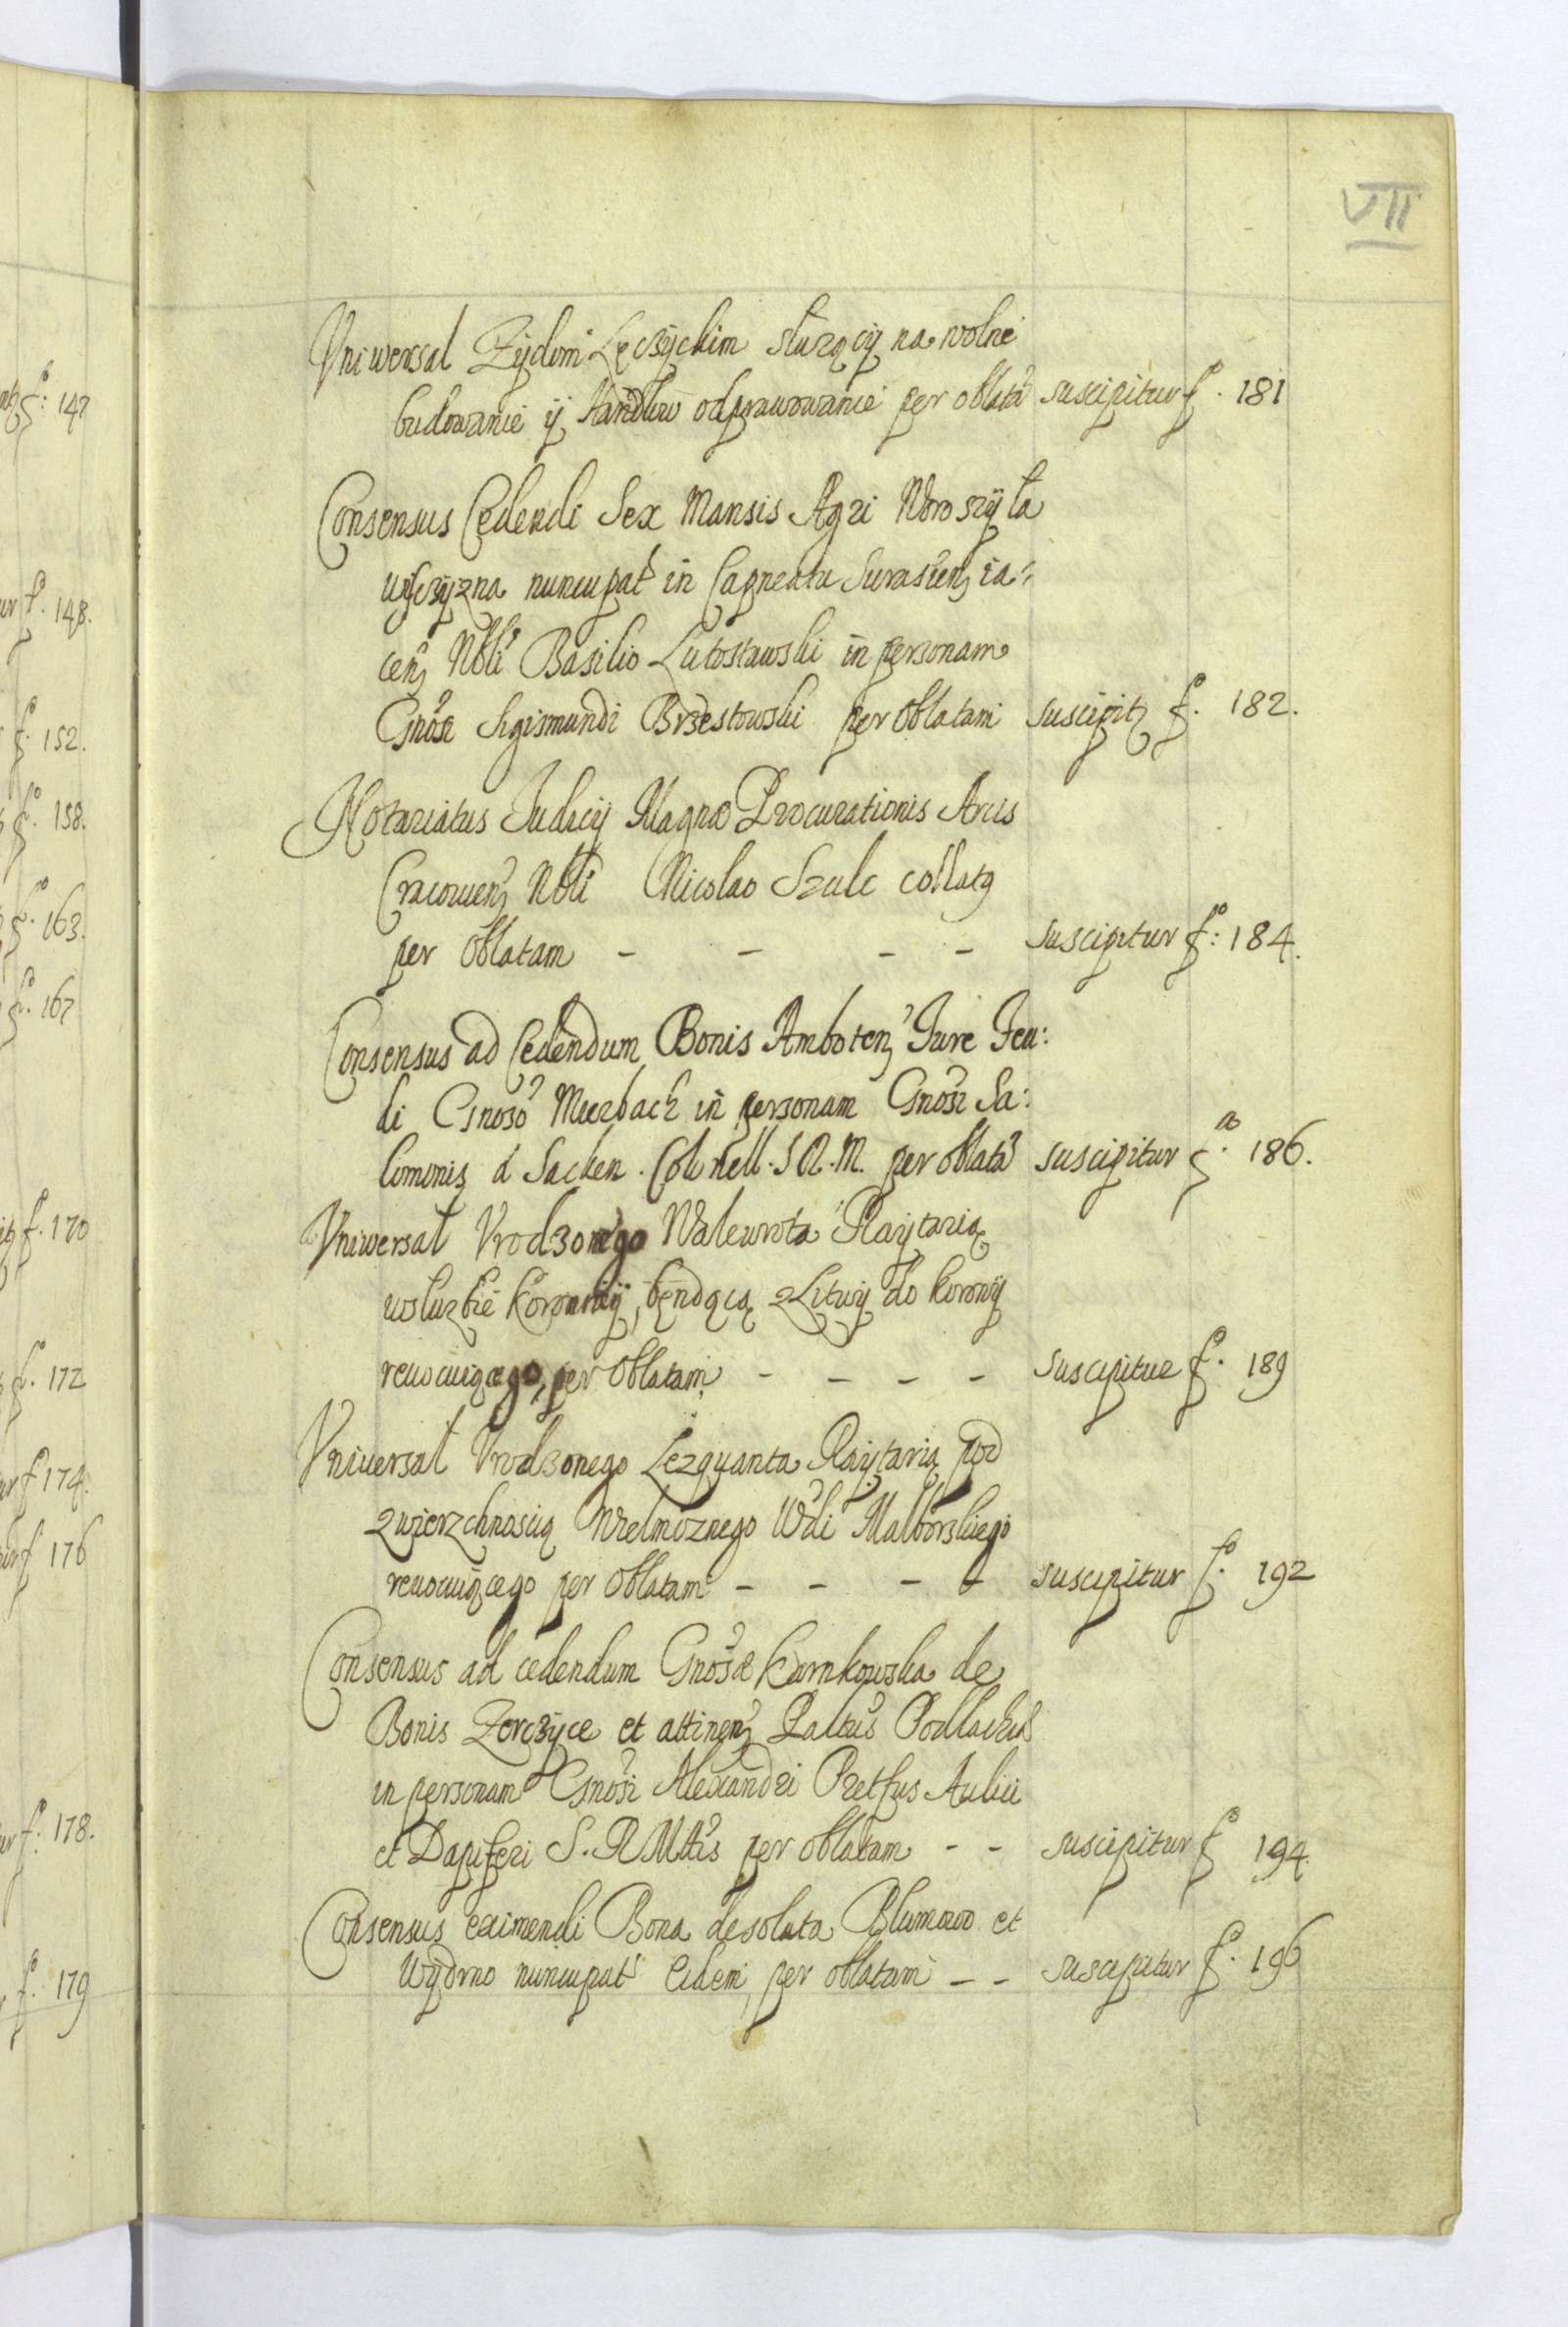 VII
Uniwersal Zydom Łęczyckim słuzącÿ na wolne
budowanie ÿ Handlow odprawowanie per oblatã suscipitur fº. 181
Consensus Cedendi Sex Mansis Agri Woroszyła
nuncupat in Capneatu Surasien ia=
cen Nbli Basilio Lutosławski in personam
Gnosi Sigismundi Brzestowski per Oblatam suscipit fº. 182.
Notariatus Judicij Magnæ Procurationis Arcis
Cracovien Nbli Nicolao Szulc collatq
per Oblatam - - - - suscipitur fº: 184.
Consensus ad Cedendum Bonis Amboten Jure Feu:
di Gnoso Mierbach in personam Gnosi Sa:
lomonis a Sacken. Colonell. S R. M. per oblatã suscipitur fº. 186.
Uniwersał Vrodzonego Walewrota Raÿtarią
wsłuzbie Koronnÿ, będącą z Litwÿ do Koronÿ
reuocuiącego, per Oblatam - - - - suscipitur fº. 189
Uniuersał Vrodzonego Lezquanta Raÿtarią pod
zwierzchnoscią Wielmoznego Wdi Malborskiego
reuocuiącego per Oblatam - - - - suscipitur fº. 192
Consensus ad cedendum Gnosæ Karnkowska de
Bonis Zerczÿce et attinen Paltus Podlachiæ
in personam Gnosi Alexandri Pretfus Aulici
et Dapiferi S. R Mttis per oblatam - - suscipitur fº 194.
Consensus eximendi Bona desolata Blumowo et
Wÿdrno nuncupat Eidem per oblatam - - suscipitur fº. 196
fº: 147
fº. 148.
fº. 152.
fº. 158.
fº. 163.
fº. 167
fº. 170
fº. 172
f 174.
f 176
fº. 178.
fº. 179